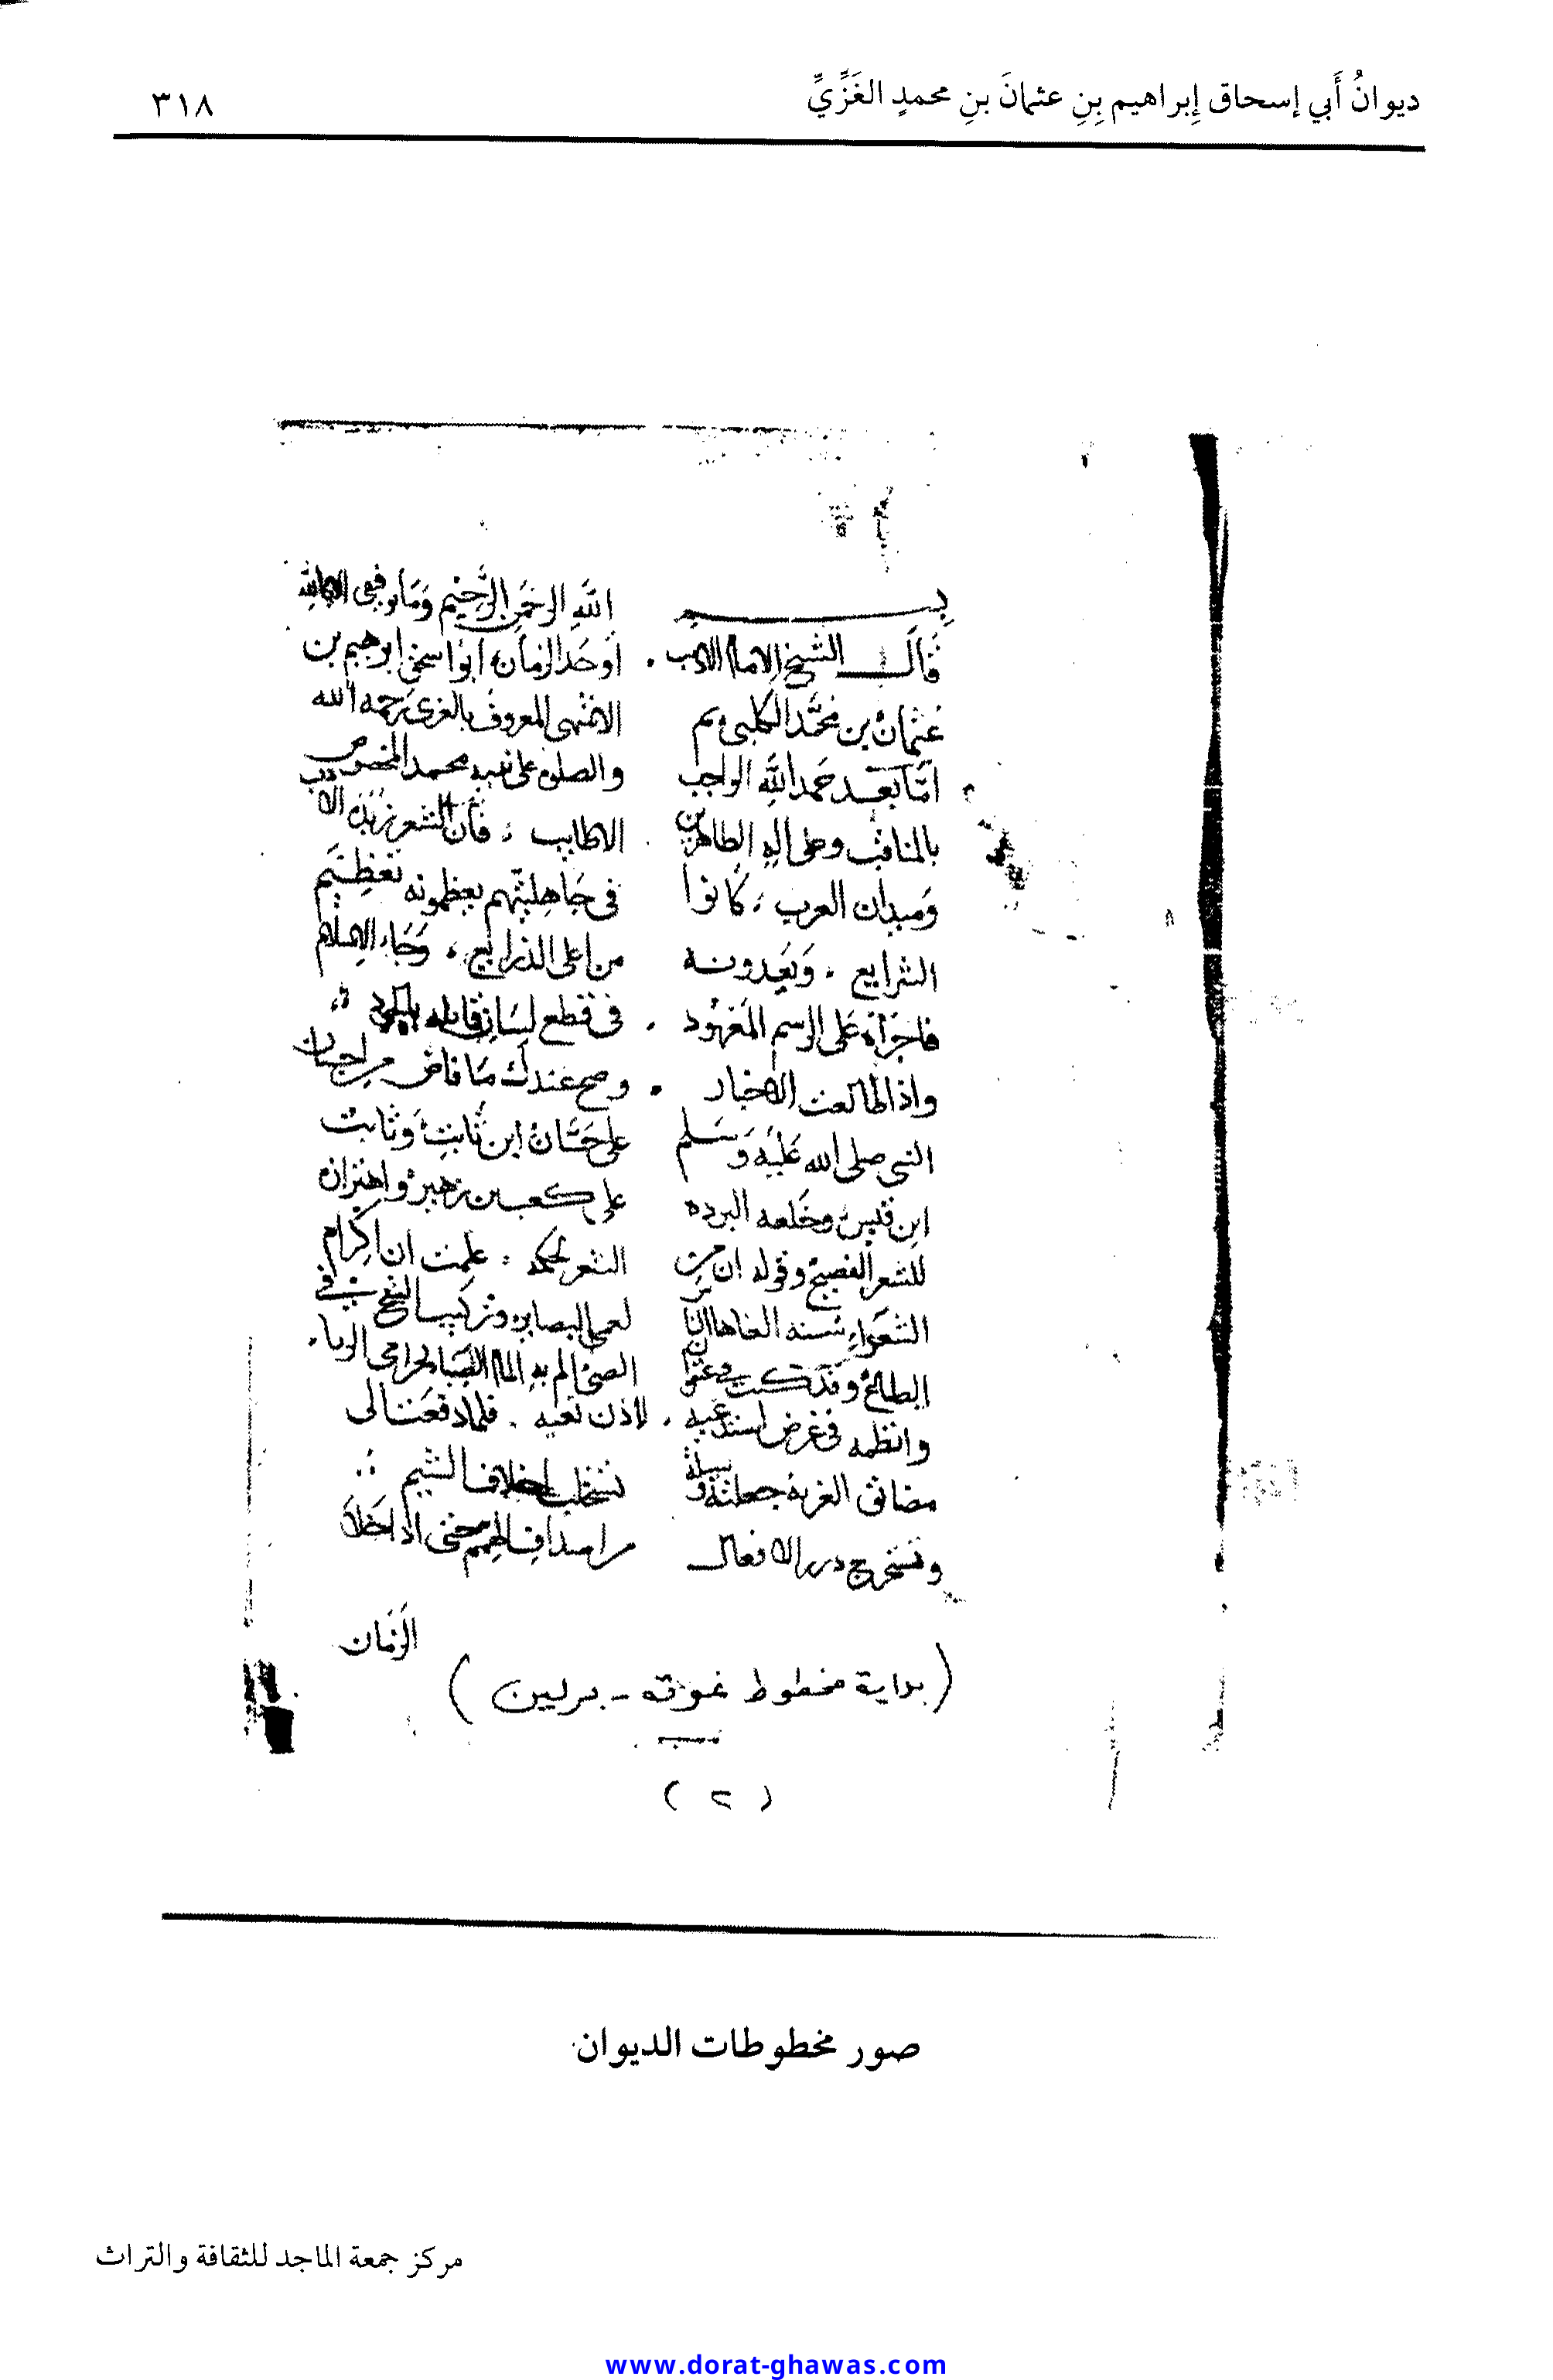 ديوانُ أَبي إسحاق إِبراهيم بِنِ عثمانَ بنِ محمدٍ الغَزِّيِّ
٣١٨
بسم الله الرحمن الرحيم وما توفيقى الا بالله
قال الشيخ الامام الاديب أوحد الزمان أبو اسحق ابرهيم بن
عثمان بن محمد الكلبى ثم الاشهبى المعروف بالغزى رحمه الله
أما بعد حمد الله الواجب والصلوه على نبيه محمد المخصوص
بالمناقب وعلى اله الطاهرين الاطايب فأن الشعر زبدة الادب
وميدان العرب كانوا فى جاهليتهم يعظمونه تعظيم
الشرايع ويعدونه من اعلى الذرايع وجاء الاسلام
فاجراه على الرسم المعهود فى قطع لسان قايله بالجود
واذا طالعت الاخبار وصح عندك ما فاض من احسان
النبى صلى الله عليه وسلم على حسان ابن ثابت وثابت
ابن قيس وخلعه البرده على كعب بن زهير واهتزازه
للشعر الفصيح وقوله ان من الشعر لحكمه علمت ان اكرام
الشعراء سنه الغاها الناس لعمى البصاير وتركيب الشح فى
الطبائع وقد كنت فى عنفوان الصبى الم به المام الصبا بخزامى الربا
وانظمه فى غرض استدعيه لاذن تعيه فلما دفعت الى
مضائق الغربة جعلته وسيلة تستحلب اخلاف الشيم
وتستخرج درر الافعال من اصداف الهمم حتى اذا خلا
الزمان
(بداية مخطوط غوته - برلين)
(٢)
صور مخطوطات الديوان
مركز جمعة الماجد للثقافة والتراث
www.dorat-ghawas.com